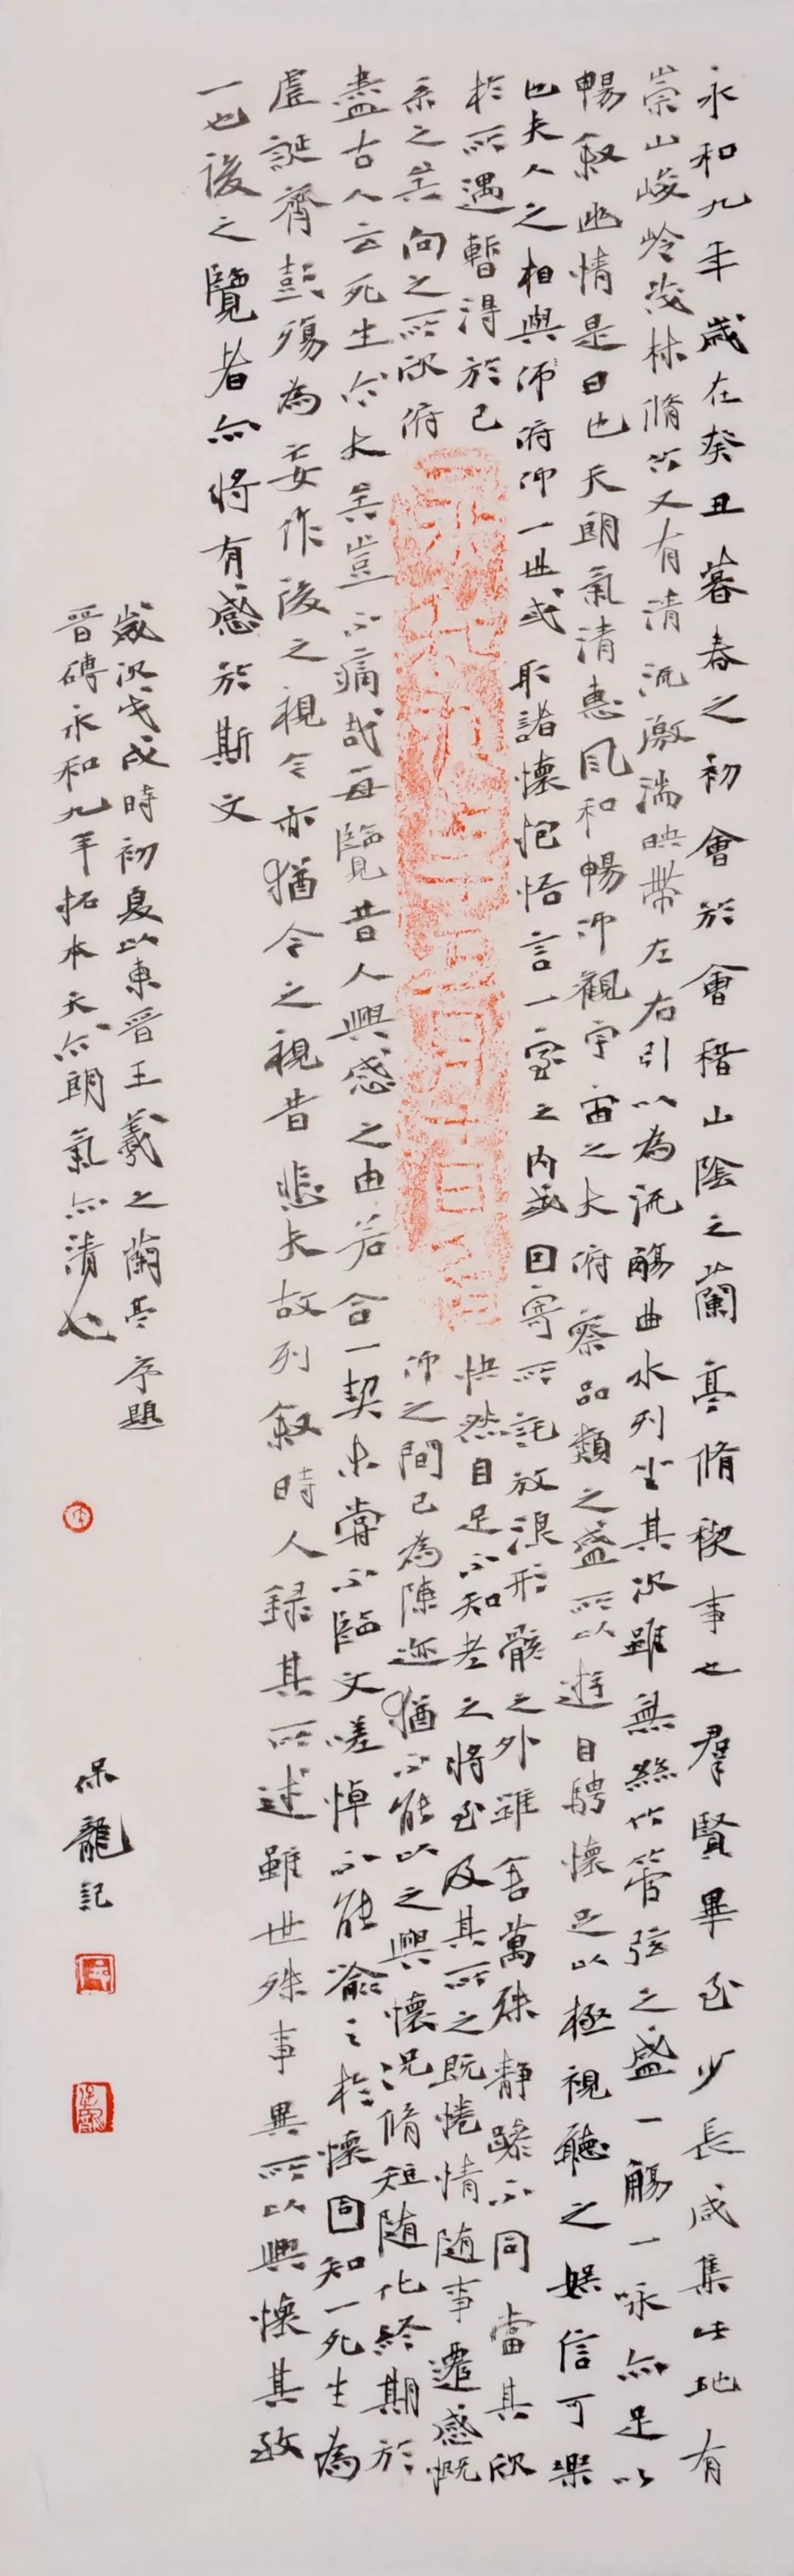 永和九年歲在癸丑暮春之初會於會稽山陰之蘭亭脩稧事也羣賢畢至少長咸集此地有
崇山峻岭茂林脩竹又有清流激湍映帶左右引以為流觴曲水列坐其次雖無絲竹管弦之盛一觴一咏亦足以
暢敘幽情是日也天朗氣清惠風和暢仰觀宇宙之大俯察品類之盛所以遊目騁懷足以極視聽之娛信可樂
也夫人之相與俯仰一世或取諸懷抱悟言一室之內或因寄所託放浪形骸之外雖舍萬殊靜躁不同當其欣
於所遇暫得於己快然自足不知老之將至及其所之既惓情隨事遷感慨
系之矣向之所欣俯仰之間已為陳迹猶不能以之興懷況脩短隨化終期於
盡古人云死生亦大矣豈不痛哉每覽昔人興感之由若合一契未嘗不臨文嗟悼不能喻之於懷固知一死生為
虛誕齊彭殤為妄作後之視今亦猶今之視昔悲夫故列敘時人錄其所述雖世殊事異所以興懷其致
一也後之覽者亦將有感於斯文
歲次戊戌時初夏以東晉王羲之蘭亭序題
晉磚永和九年拓本天亦朗氣亦清也
保龍記